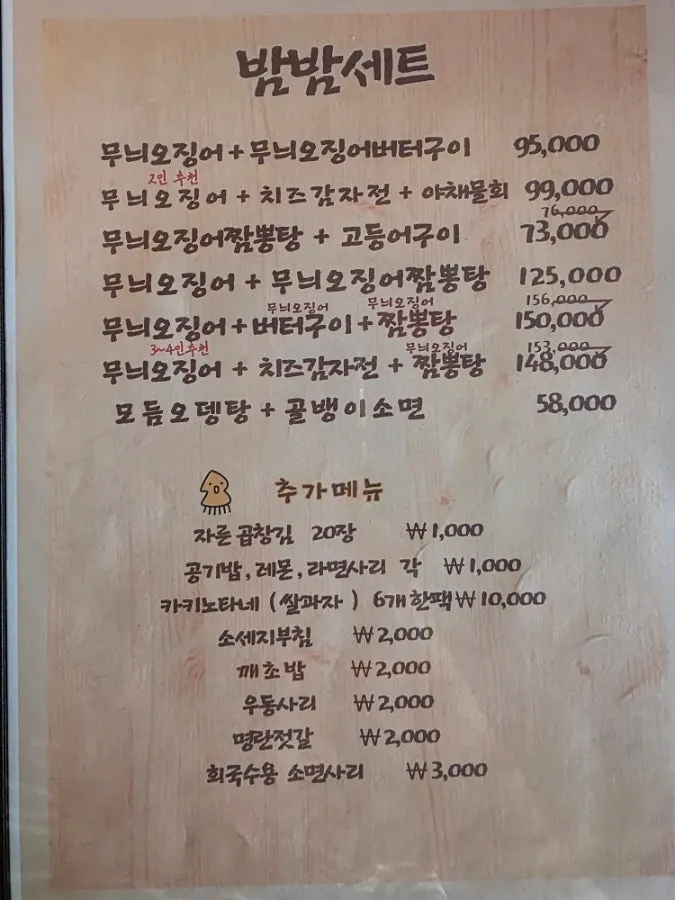 밤밤세트
무늬오징어 + 무늬오징어버터구이 95,000
2인 추천
무늬오징어 + 치즈감자전 + 야채물회 99,000
76,000
무늬오징어짬뽕탕 + 고등어구이 73,000
무늬오징어 + 무늬오징어짬뽕탕 125,000
무늬오징어 무늬오징어 156,000
무늬오징어 + 버터구이 + 짬뽕탕 150,000
3~4인추천 무늬오징어 153,000
무늬오징어 + 치즈감자전 + 짬뽕탕 148,000
모듬오뎅탕 + 골뱅이소면 58,000
추가메뉴
자른 곱창김 20장 ₩1,000
공기밥, 레몬, 라면사리 각 ₩1,000
카키노타네 (쌀과자) 6개 한팩 ₩10,000
소세지부침 ₩2,000
깨초밥 ₩2,000
우동사리 ₩2,000
명란젓갈 ₩2,000
회국수용 소면사리 ₩3,000